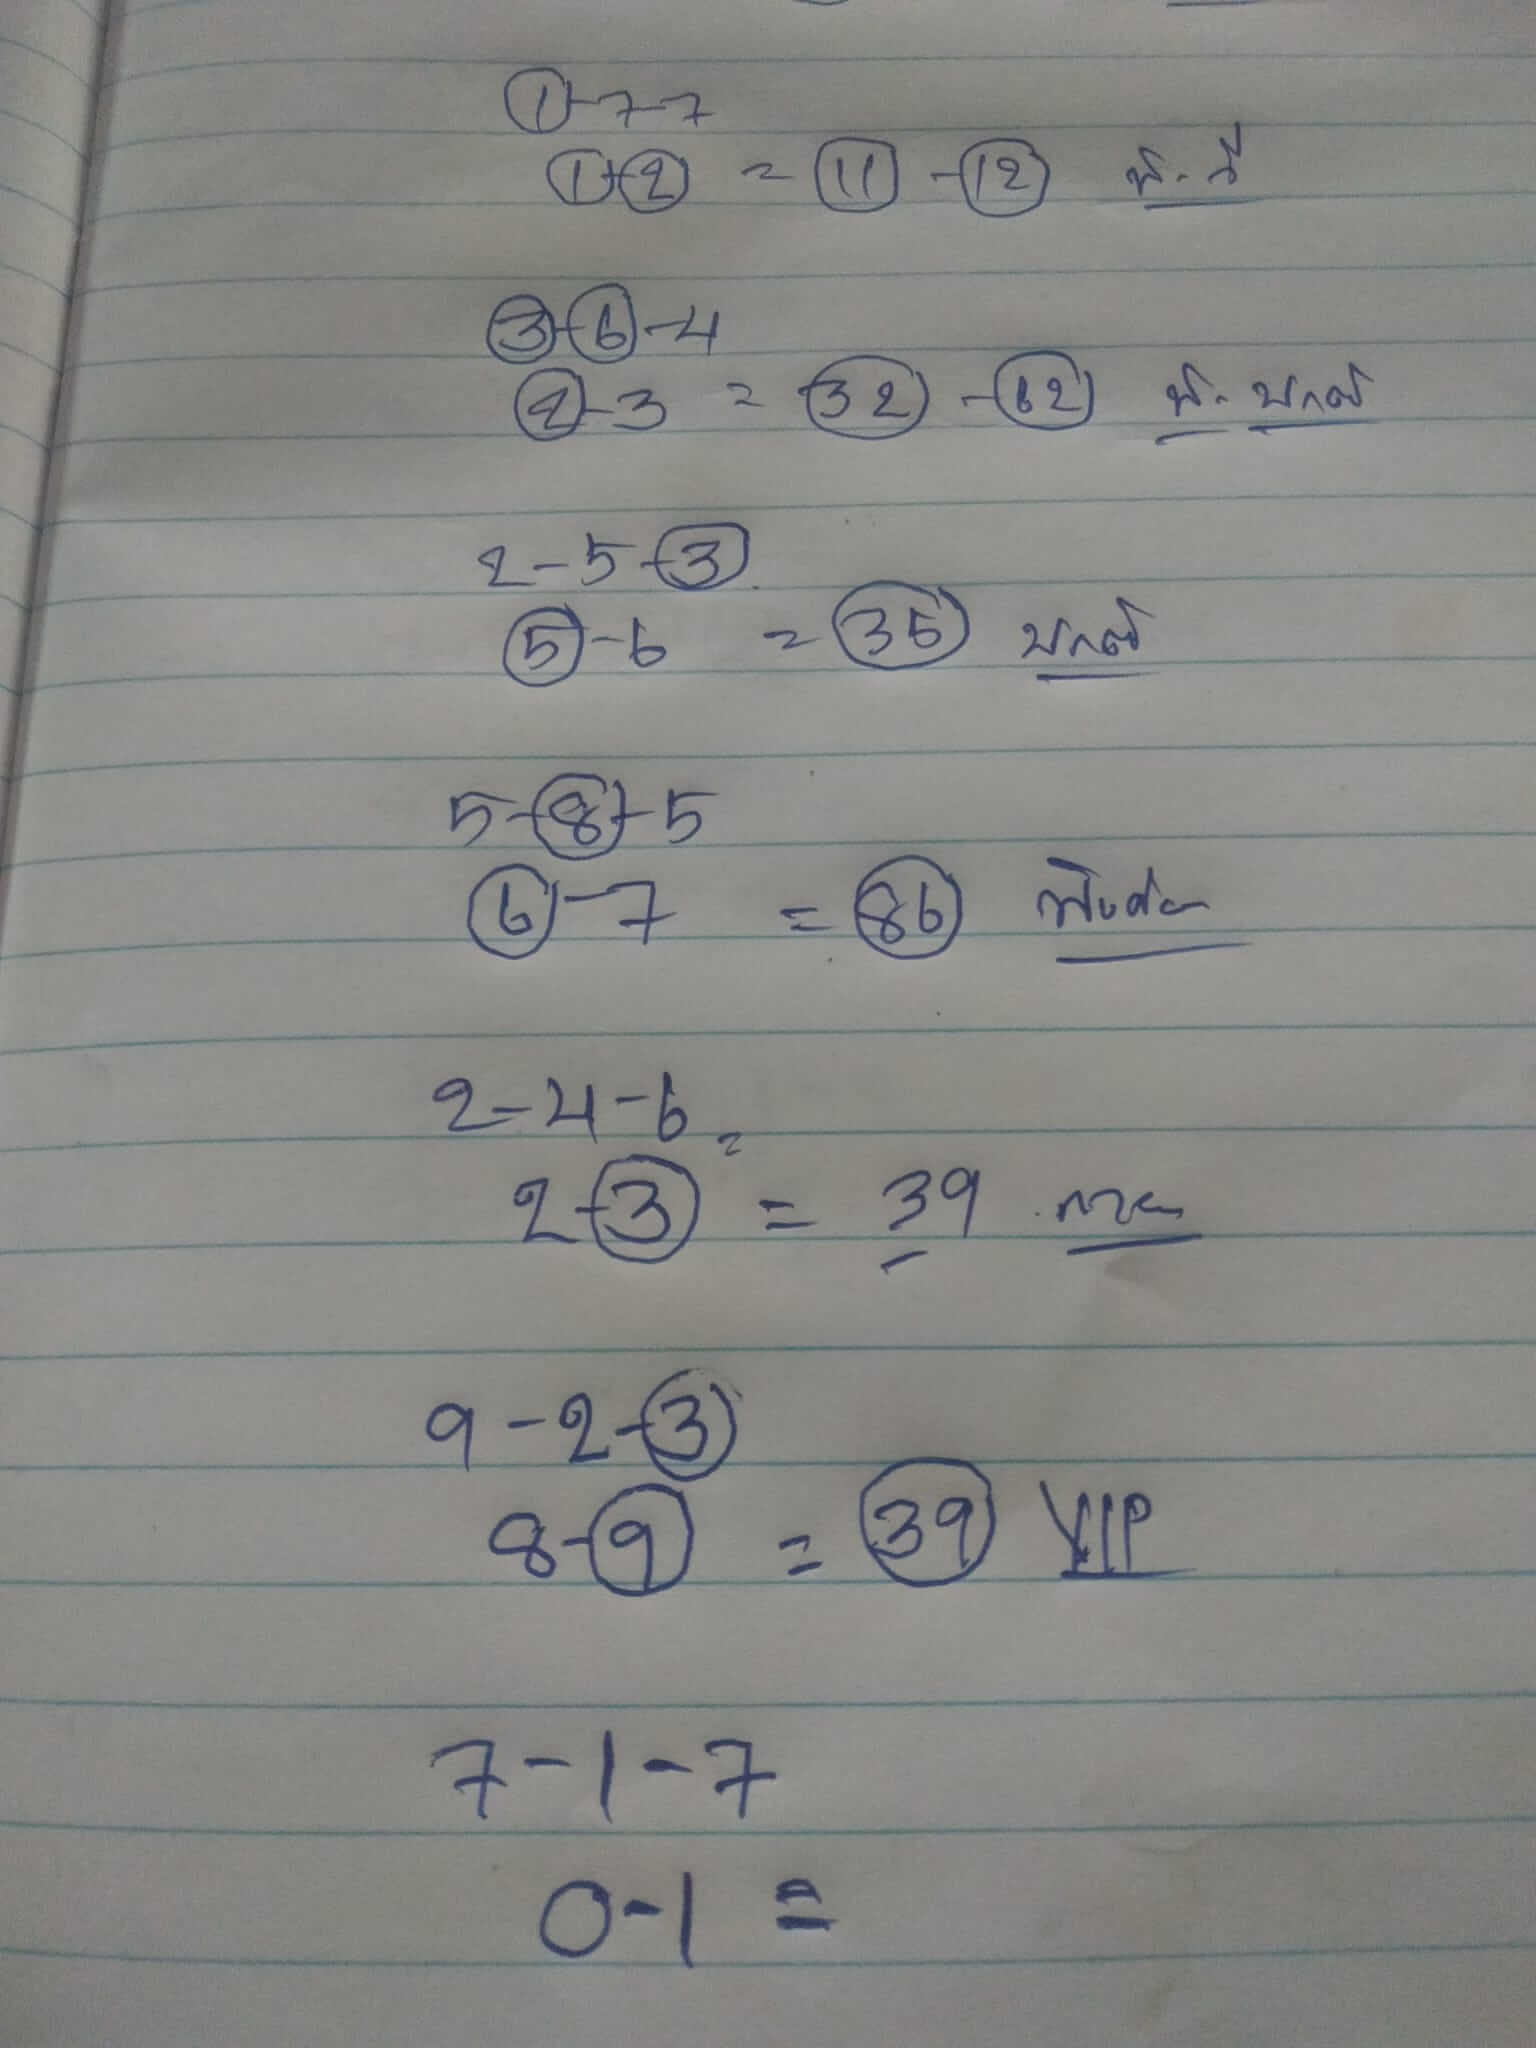 1-7-7
1-2 = 11-12 พ.วี
3-6-4
2-3 = 32-62 พ. ปกติ
2-5-3
5-6 = 35 ปกติ
5-8-5
6-7 = 86 พิเศษ
2-4-6
2-3 = 39
9-2-3
8-9 = 39 VIP
7-1-7
0-1 =